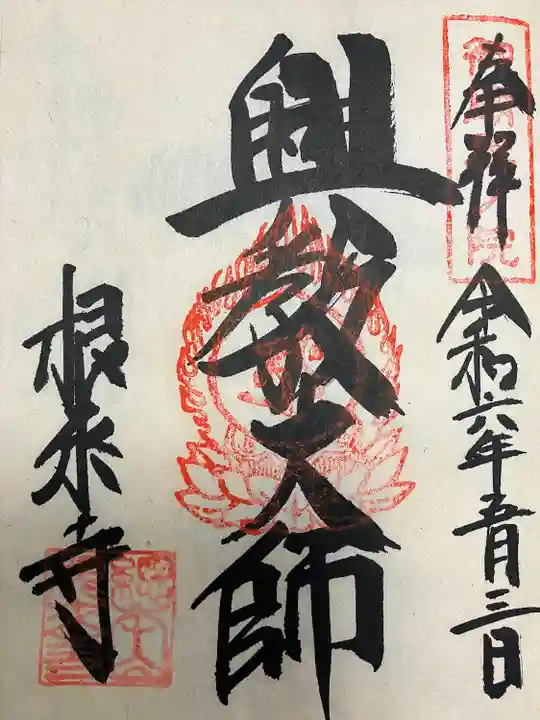 奉拝 令和六年五月三日
興教大師
根来寺